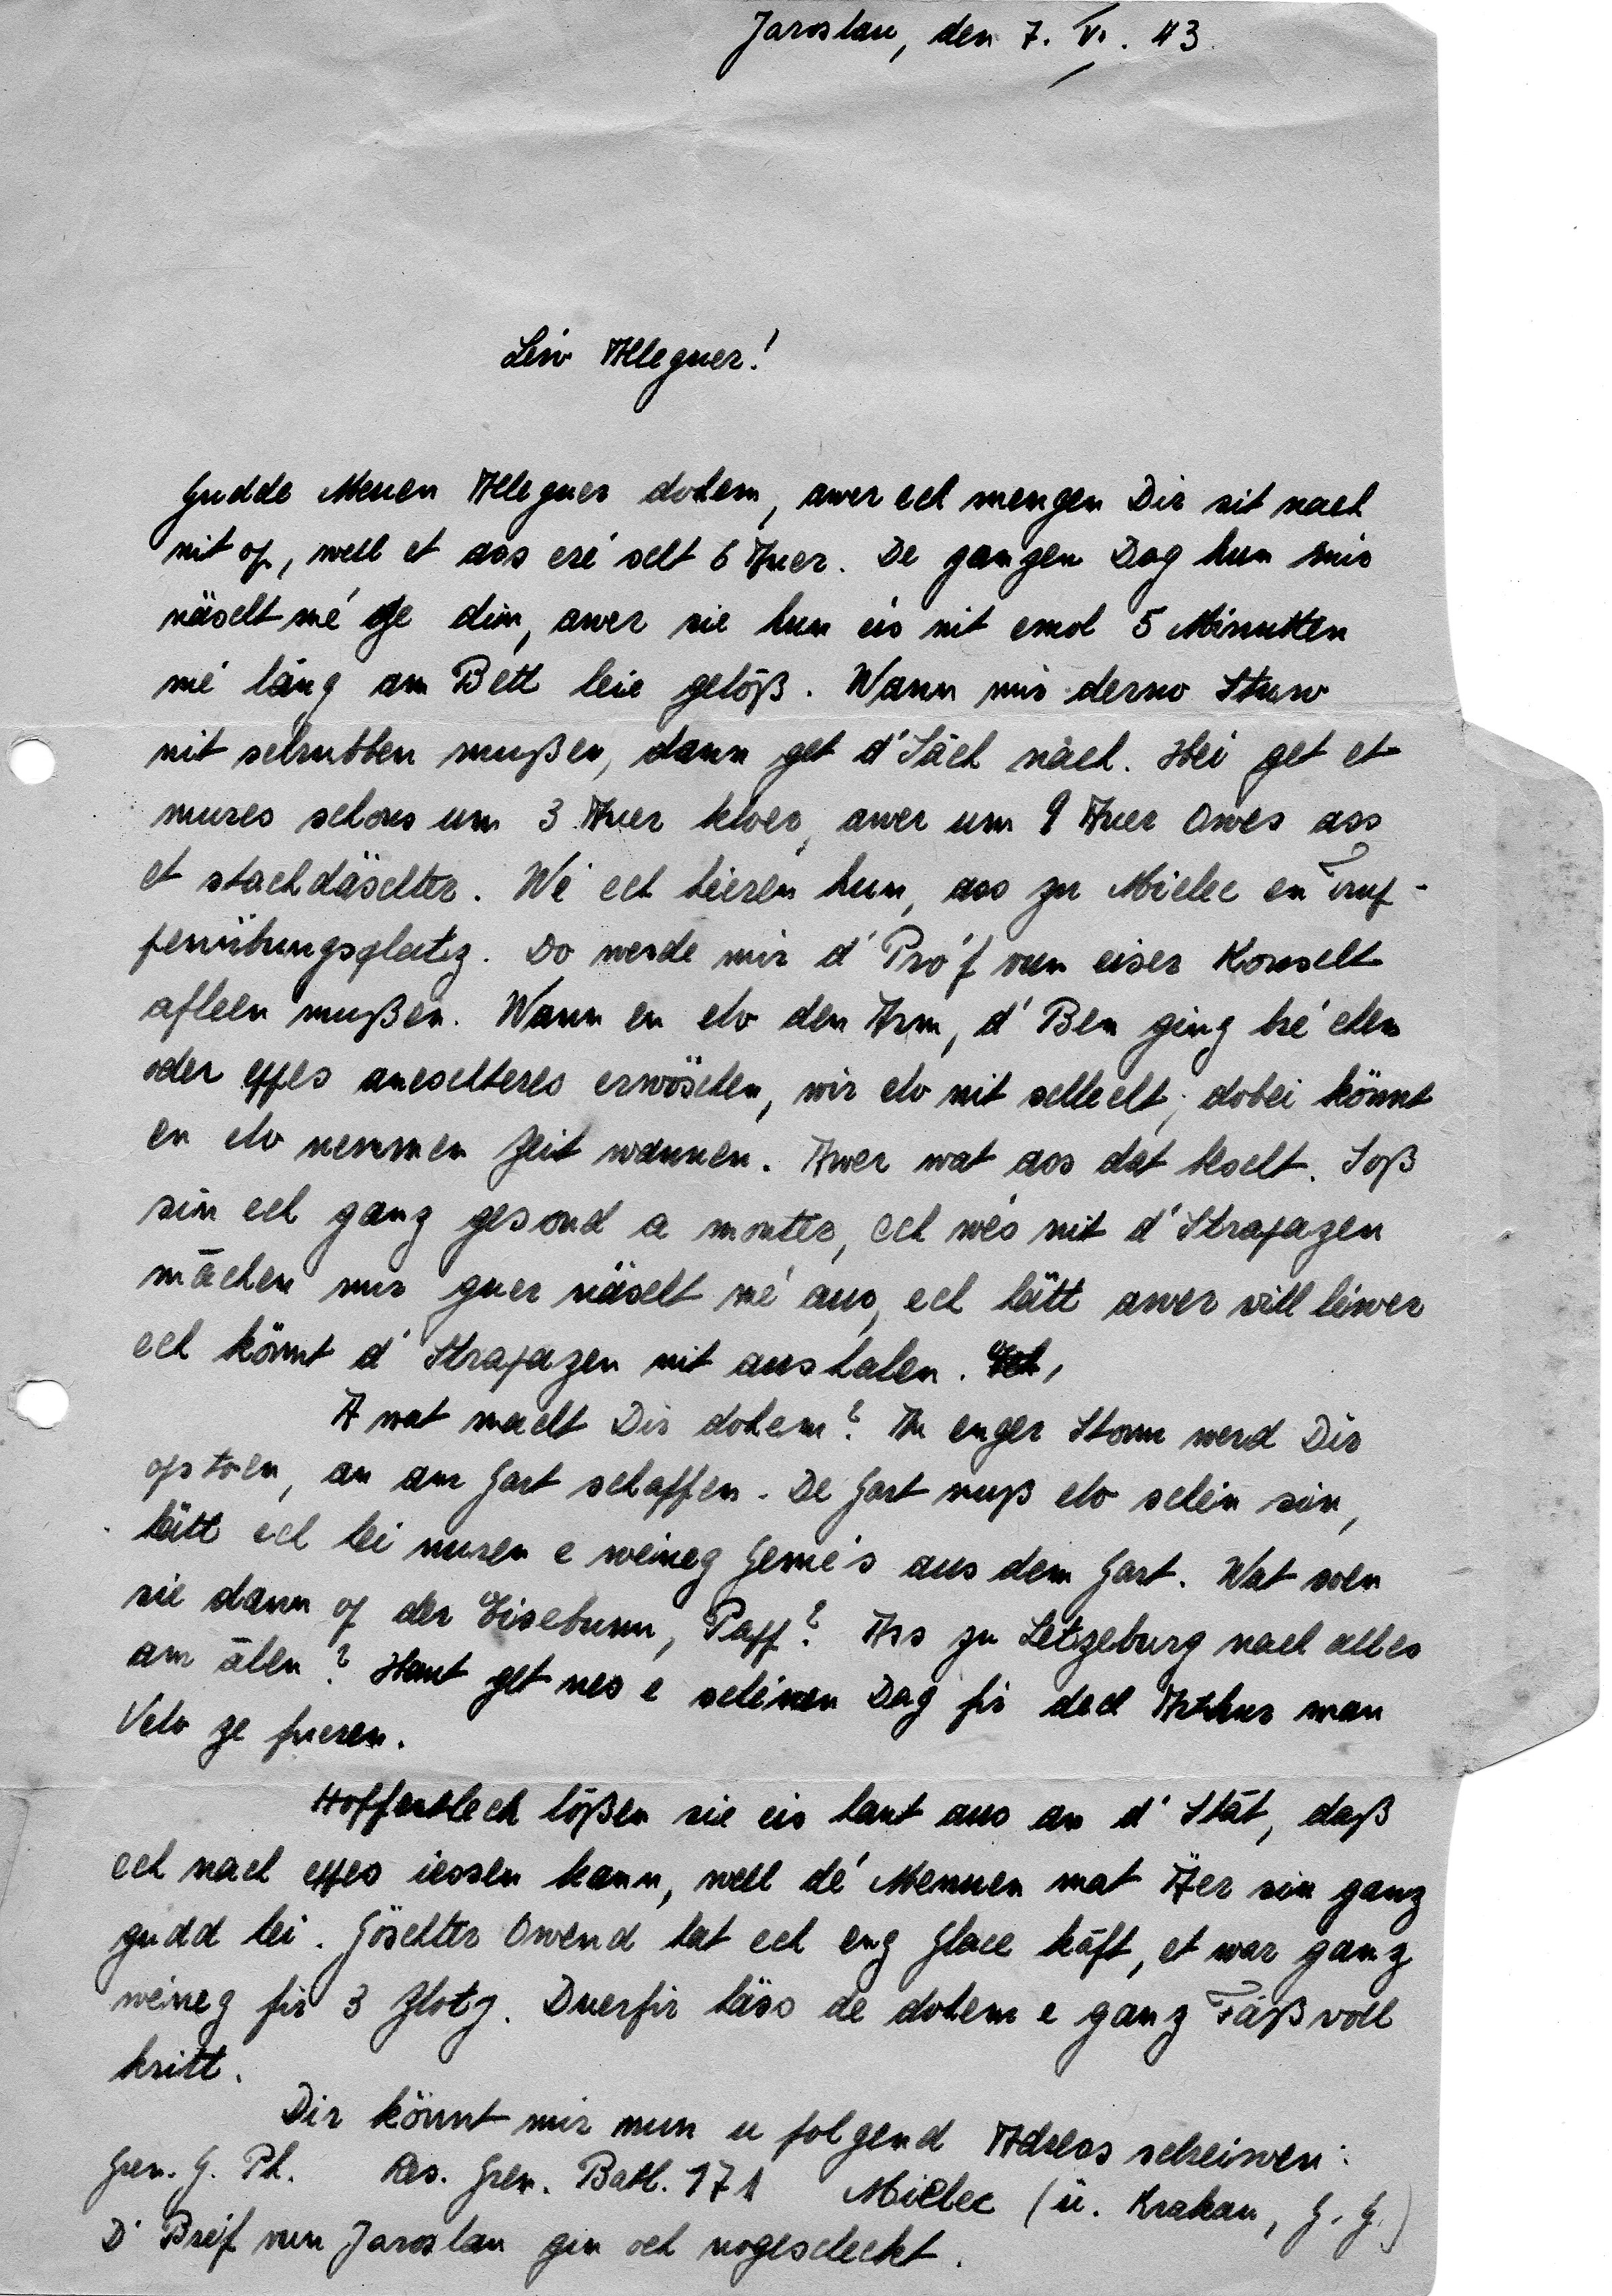 Jaroslau, den 7. VI. 43.
Léiw Alleguer!
Gudde Muen Alleguer dohem, awer ech mengen Dir sit nach
nit op, well et ass eré scht 6 Auer. De ganzen Dag hun mir
näscht mé ge din, awer sie hun eis nit emol 5 Minutten
mé läng am Bett leie gelöß. Wann mir derno Stuw
nit schrubben mußen, dann get d'Säch näch. Hei get et
mures schons um 3 Auer kloer, awer um 9 Auer Owes ass
et stachdäschter. Wé ech héieren hun, ass zu Mielec en Trup-
penübungsplatz. Do werde mir d'Próf vun eiser Konscht
afleen mußen. Wann en elo den Arm, d'Ben ging bréchen
oder eppes aneschteres erwöschen, wir elo nit schlecht; dobei könnt
en elo nemmen Zeit wannen. Awer wat ass dat kscht. Soß
sin ech ganz gesond a monter, ech wés nit d'Strapazen
mächen mir guer näscht mé aus, ech hätt awer vill léiwer
ech könnt d'Strapazen nit aushalen.
A wat macht Dir dohem? An enger Stonn werd Dir
opstoen, an am Gart schaffen. De Gart muß elo schéin sin,
hätt ech hei nuren e weineg Gemés aus dem Gart. Wat soen
sie dann op der Eisebunn, Papp? Ass zu Letzeburg nach alles
am ählen? Haut get nes e schéinen Dag fir dech Arthur man
Velo ze fueren.
Hoffentlech lößen sie eis haut aus an d'Stät, daß
ech nach eppes iessen kann, well dé Mennen mat Äer sin ganz
gudd hei. Göschter Owend hat ech eng Glace käft, et war ganz
weineg fir 3 Zloty. Duerfir häss de dohem e ganz Fäß voll
kritt.
Dir könnt mir nun u folgend Adress schreiwen:
Gren. G. Ph. Res. Gren. Batl. 171 Mielec (ü. Krakau, G. G.)
D'Bréf vun Jaroslau gin och nogescheckt.